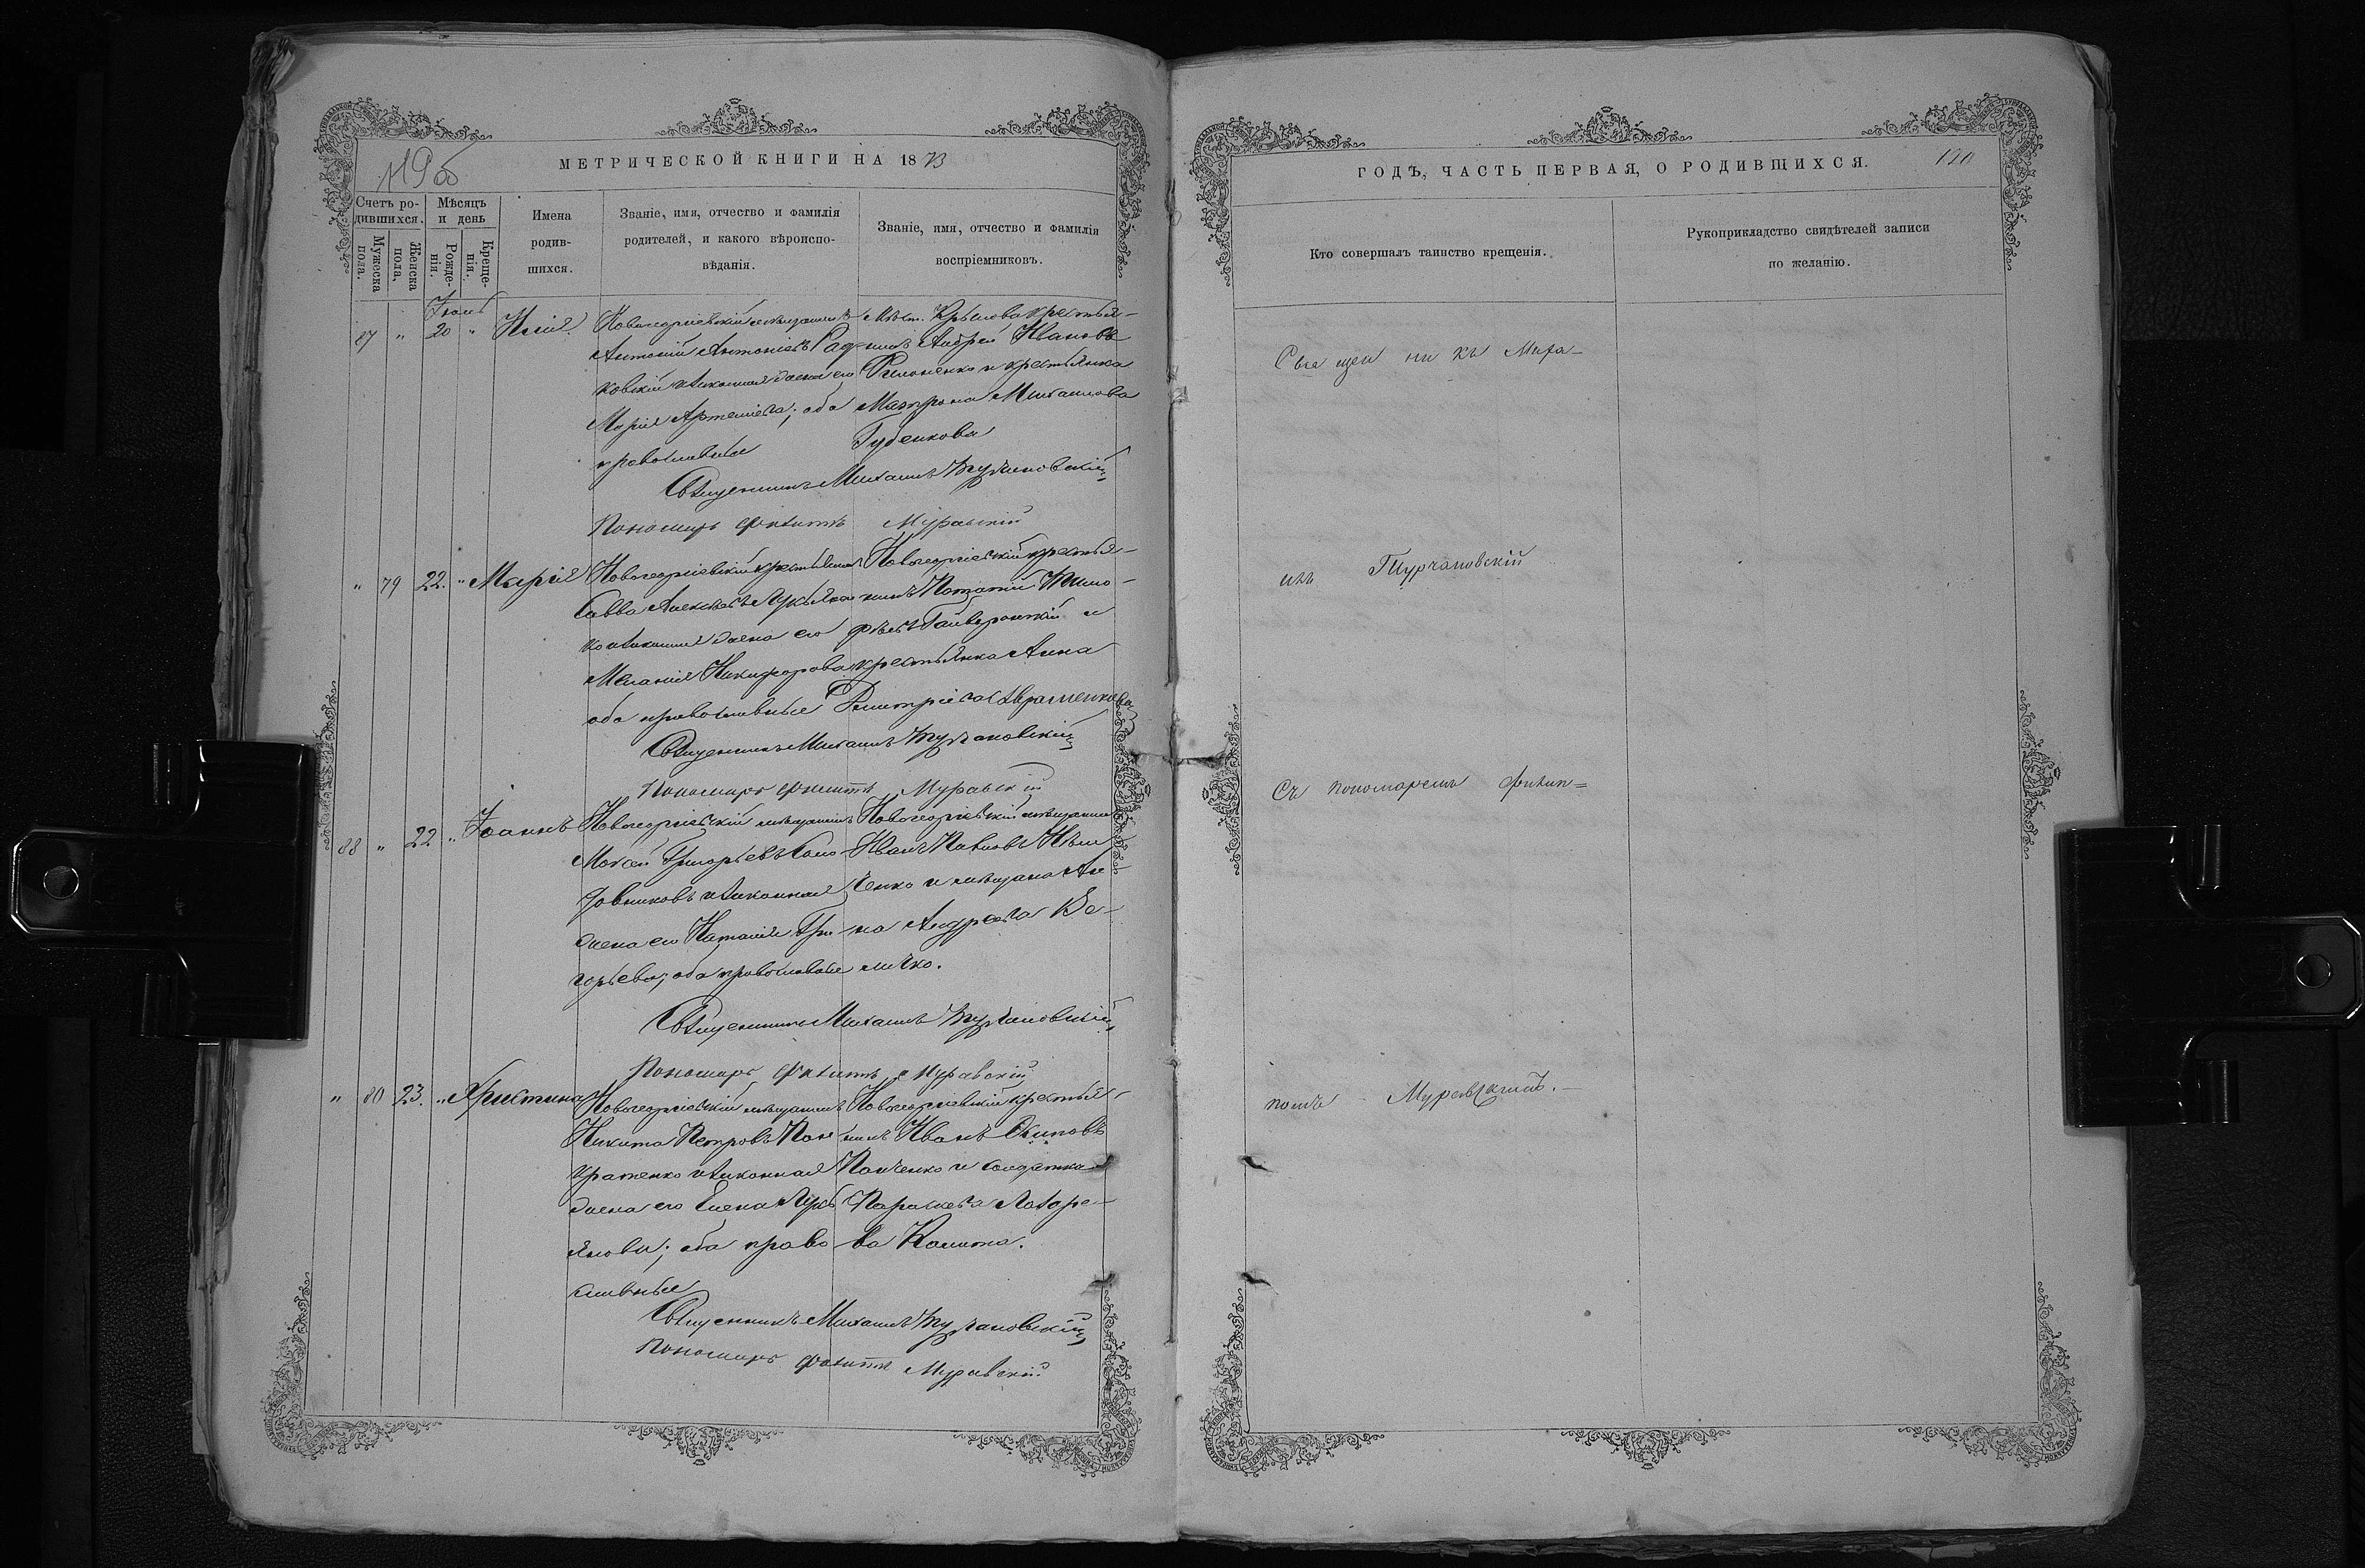 119об
МЕТРИЧЕСКОЙ КНИГИ НА 1873
Счетъ ро-
дившихся.
Мужеска пола.
Женска пола.
Мѣсяцъ
и день
Рожде-
нія.
Креще-
нія.
Имена
родив-
шихся.
Званіе, имя, отчество и фамилія
родителей, и какого вѣроиспо-
вѣданія.
Званіе, имя, отчество и фамилія
воспріемниковъ.
87 " 20 " Юлія
Новогеоргіевскій мѣщанинъ
Антоній Антоніевъ
законная жена его
Марія Артеміева; оба
православные
крестья-
нинъ Андрей Ивановъ
и крестьянка
Матрона Михаилова
Губенкова
Священникъ Михаилъ Турчановскій
Пономарь Филиппъ Муравскій
" 79 22. " Марія
Новогеоргіевскій крестьянинъ
Савва Алексѣевъ Лукьянен
ко и законная жена его
Меланія Никифорова
оба православные
Новогеоргіевскій крестья-
нинъ Потапій Тимо-
фѣевъ Гайворонскій и
крестьянка Анна
Димитріева Авраменкова
Священникъ Михаилъ Турчановскій
Пономарь Филиппъ Муравскій
88 " 22 " Іоаннъ
Новогеоргіевскій мѣщанинъ
Моѵсей Григорьевъ
и законная
жена его Наталія Гри-
горьева; оба православные
Новогеоргіевскій мѣщанинъ
Иванъ Павловъ
ченко и мѣщанка Ан-
на Андреева Ве-
личко.
Священникъ Михаилъ Турчановскій
Пономарь Филиппъ Муравскій
" 80 23. " Христина
Новогеоргіевскій мѣщанинъ
Никита Петровъ Пон
кратенко и законная
жена его Елена Лукь
янова; оба право
славные
Новогеоргіевскій крестья-
нинъ Иванъ Осиповъ
Панченко и солдатка
Параскева Лазаре-
ва Калита.
Священникъ Михаилъ Турчановскій
Пономарь Филиппъ Муравскій
ГОДЪ, ЧАСТЬ ПЕРВАЯ, О РОДИВШИХСЯ.
120
Кто совершалъ таинство крещенія.
Рукоприкладство свидѣтелей записи
по желанію.
Священникъ Миха-
илъ Турчановскій
Съ пономаремъ Филип=
помъ Муравскимъ.